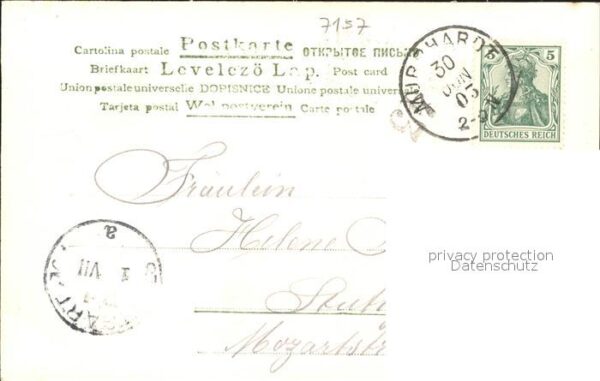 7157
Cartolina postale Postkarte ОТКРЫТОЕ ПИСЬМО
Briefkaart Levelező Lap. Post card
Union postale universelle DOPISNICE Unione postale univer
Tarjeta postal Weltpostverein Carte postale
MURRHARDT
30 JUN 03
2-3 N
5 5
DEUTSCHES REICH
Fräulein
Helene
Stutt
Mozartstr
a
1 VII
privacy protection
Datenschutz